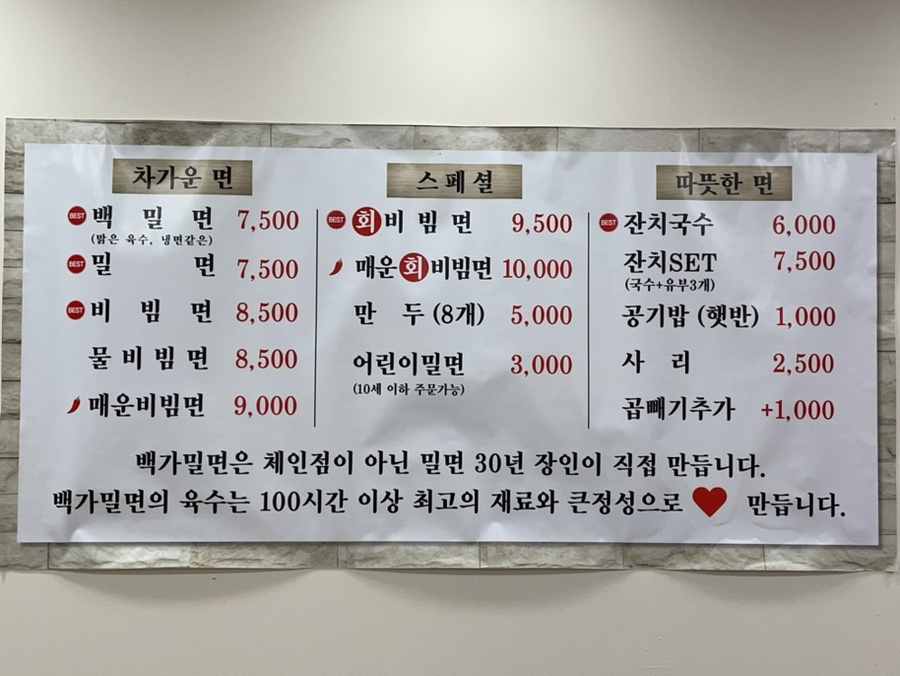 차가운 면
BEST 백 밀 면 7,500
(맑은 육수, 냉면같은)
BEST 밀 면 7,500
BEST 비 빔 면 8,500
물 비 빔 면 8,500
매운비빔면 9,000
스 페 셜
BEST 회 비 빔 면 9,500
매운 회 비빔면 10,000
만 두 (8개) 5,000
어린이밀면 3,000
(10세 이하 주문가능)
따뜻한 면
BEST 잔치국수 6,000
잔치SET 7,500
(국수+유부3개)
공기밥 (햇반) 1,000
사 리 2,500
곱빼기추가 +1,000
백가밀면은 체인점이 아닌 밀면 30년 장인이 직접 만듭니다.
백가밀면의 육수는 100시간 이상 최고의 재료와 큰정성으로 ♥ 만듭니다.